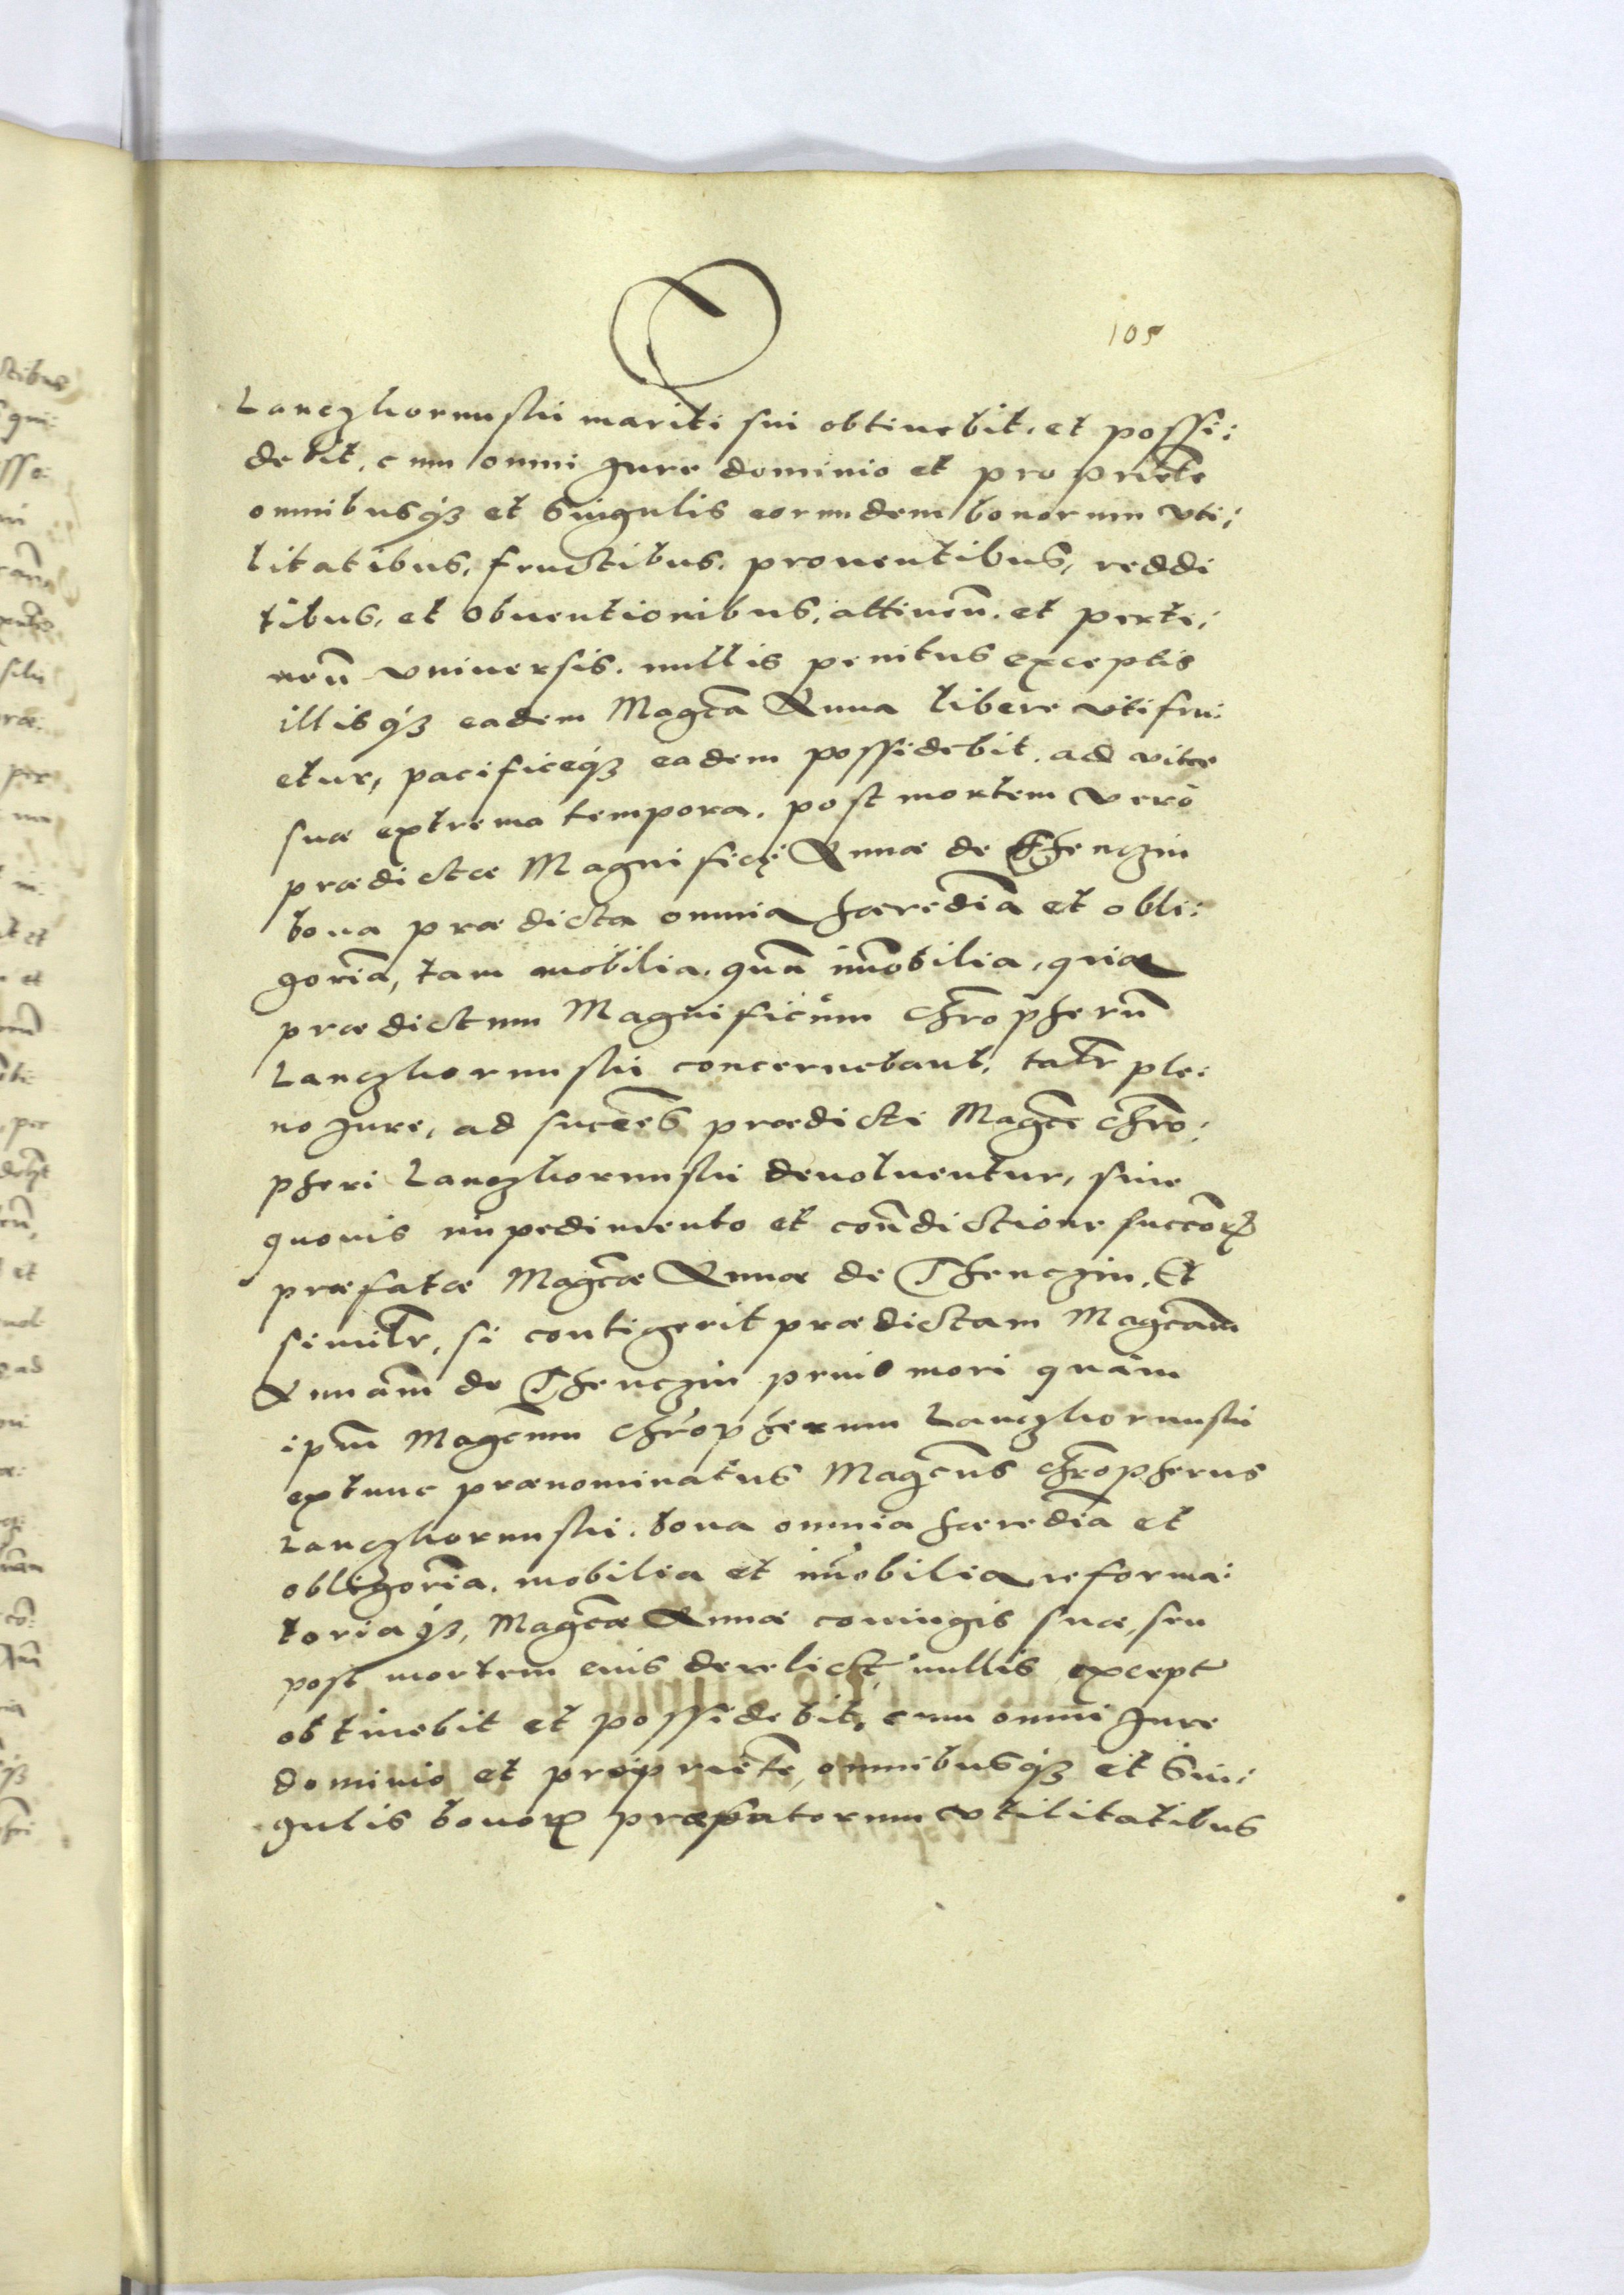 105
Lanczkorunskii mariti sui obtinebit, et possi:
debit, cum omni Jure dominio et proprietē
omnibusq́ꝫ et Singulis eorundem bonorum vti:
litatibus, fructibus, prouentibus, reddi
tibus, et Obuentionibus, attineñ. et perti:
neñ vniuersis. nullis penitus exceptis
illisq́ꝫ eadem Magcā Anna libere vtifru:
etur, pacificeq́ꝫ eadem possidebit, ad vitae
suae extrema tempora, post mortem verò
praedictae Magnificę Annae de Thenczin
bona praedicta omnia haerediā et obli:
goriā, tam mobilia, quā im̄obilia, quae
praedictum Magnificum Chrōpherū
Lanczkorunskii concernebant, talr̄ ple:
no Jure, ad succēs praedicti Magcī Chrō:
pheri Lanczkorunskii deuoluentur, sine
quouis impedimento et con̄dictione succōrꝫ
praefatae Magcāe Annae de Thenczin, Et
similr̄, si contigerit praedictam Magcām
Annam de Thenczin prius mori quàm
ipm̄ Magcūm Chrōpherum Lanczkorunskii
extunc praenominatus Magcūs Chrōpherus
Lanczkorunskii, bona omnia haerediā et
obligoriā, mobilia et im̄obilia reforma:
toriaq́ꝫ, Magcāe Annae coniugis suae, seu
post mortem eius derelict, nullis except
obtinebit et possidebit, cum omni Jure
dominio et proprietē, omnibusq́ꝫ et Sin:
gulis bonorꝫ praefatorum vtilitatibus